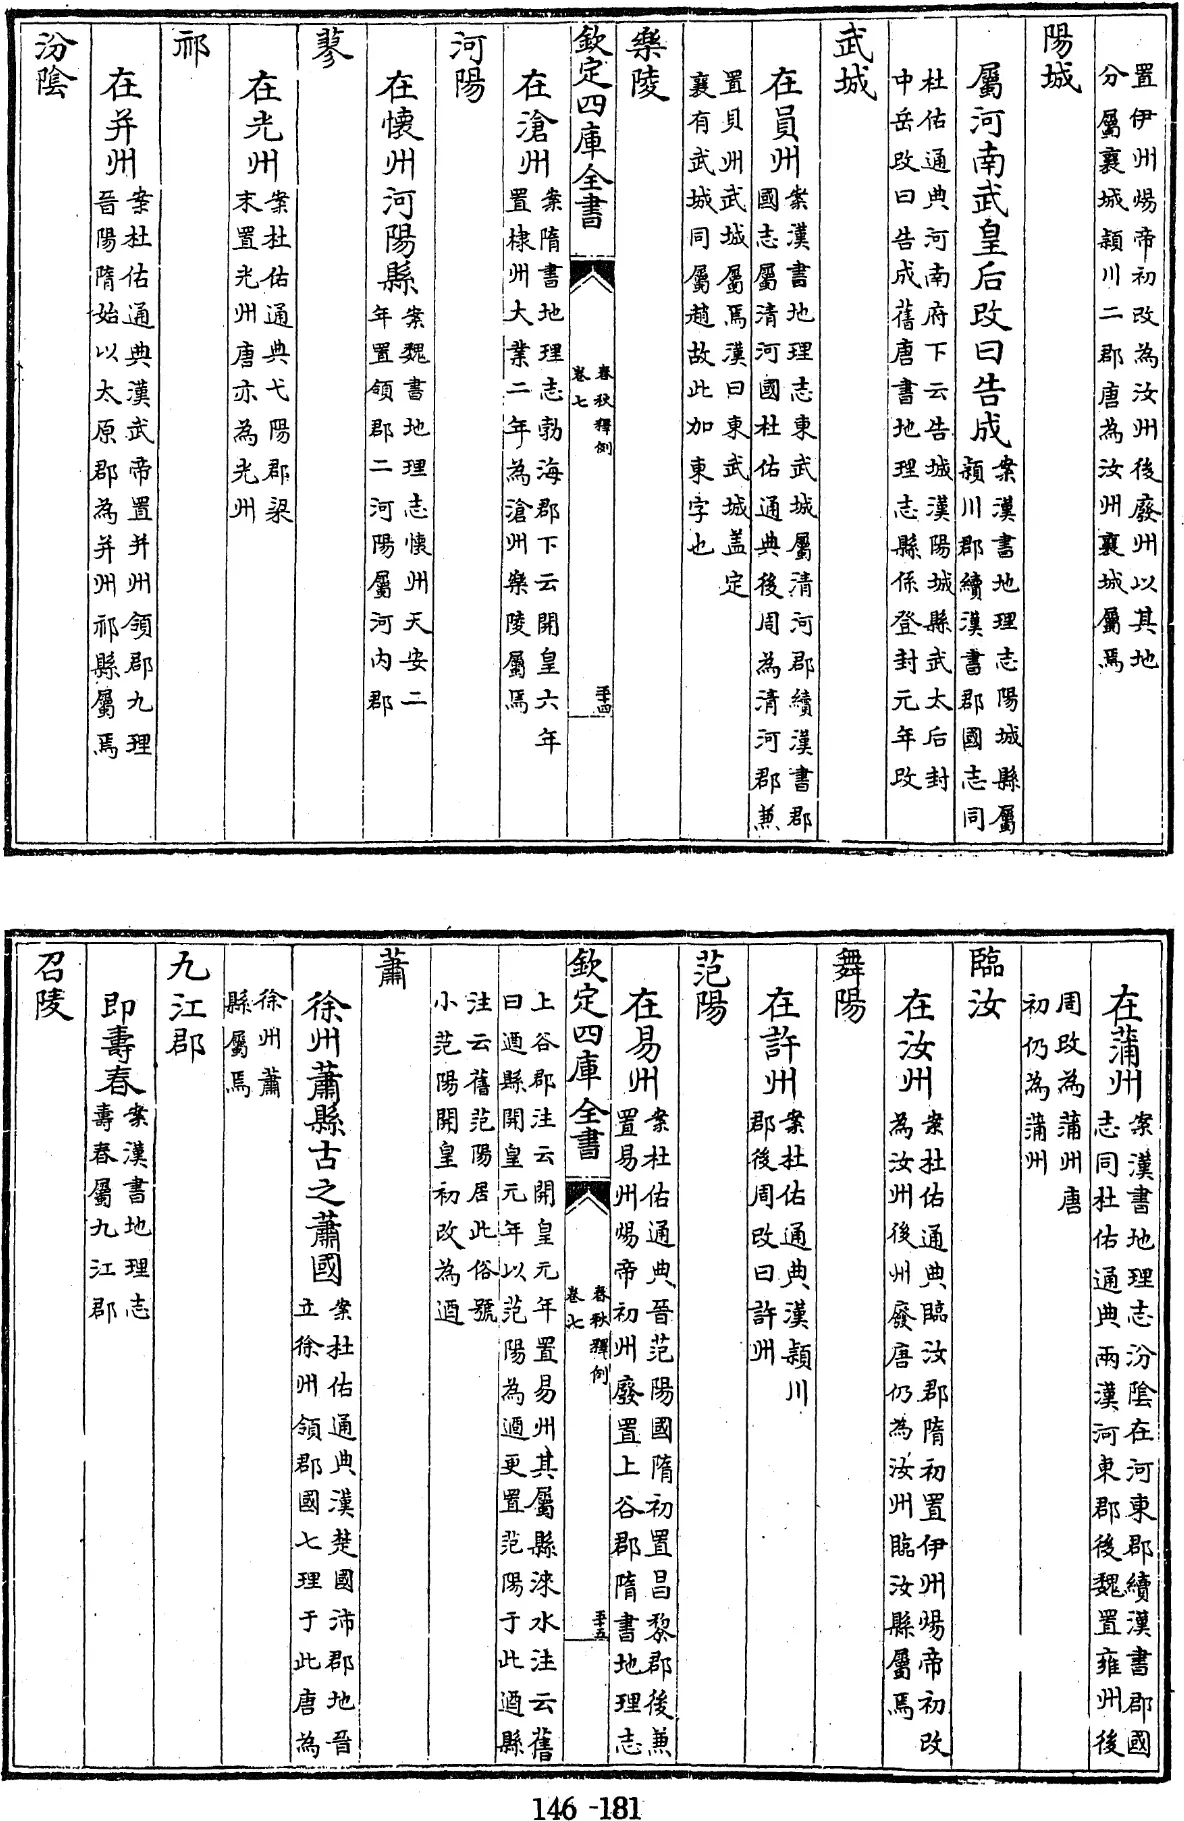 置伊州煬帝初改為汝州後廢州以其地
分屬襄城潁川二郡唐為汝州襄城屬焉
陽城
屬河南武皇后改曰告成
案漢書地理志陽城縣屬
潁川郡續漢書郡國志同
杜佑通典河南府下云告城漢陽城縣武太后封
中岳改曰告成舊唐書地理志縣係登封元年改
武城
在貟州
案漢書地理志東武城屬清河郡續漢書郡
國志屬清河國杜佑通典後周為清河郡兼
置貝州武城屬焉漢曰東武城盖定
襄有武城同屬趙故此加東字也
樂陵
欽定四庫全書
春秋釋例
卷七
五十四
在滄州
案隋書地理志勃海郡下云開皇六年
置棣州大業二年為滄州樂陵屬焉
河陽
在懷州河陽縣
案魏書地理志懷州天安二
年置領郡二河陽屬河内郡
蓼
在光州
案杜佑通典弋陽郡梁
末置光州唐亦為光州
祁
在并州
案杜佑通典漢武帝置并州領郡九理
晉陽隋始以太原郡為并州祁縣屬焉
汾陰
在蒲州
案漢書地理志汾陰在河東郡續漢書郡國
志同杜佑通典兩漢河東郡後魏置雍州後
周改為蒲州唐
初仍為蒲州
臨汝
在汝州
案杜佑通典臨汝郡隋初置伊州煬帝初改
為汝州後州廢唐仍為汝州臨汝縣屬焉
舞陽
在許州
案杜佑通典漢潁川
郡後周改曰許州
范陽
在易州
案杜佑通典晉范陽國隋初置昌黎郡後兼
置易州煬帝初州廢置上谷郡隋書地理志
欽定四庫全書
春秋釋例
卷七
五十五
上谷郡注云開皇元年置易州其屬縣淶水注云舊
曰遒縣開皇元年以范陽為遒更置范陽于此遒縣
注云舊范陽居此俗號
小范陽開皇初改為遒
蕭
徐州蕭縣古之蕭國
案杜佑通典漢楚國沛郡地晉
立徐州領郡國七理于此唐為
徐州蕭
縣屬焉
九江郡
即壽春
案漢書地理志
壽春屬九江郡
召陵
146-181